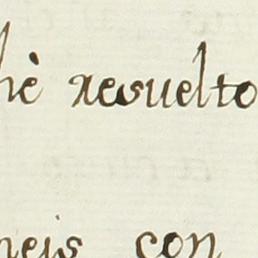 hè resuelto
neis con